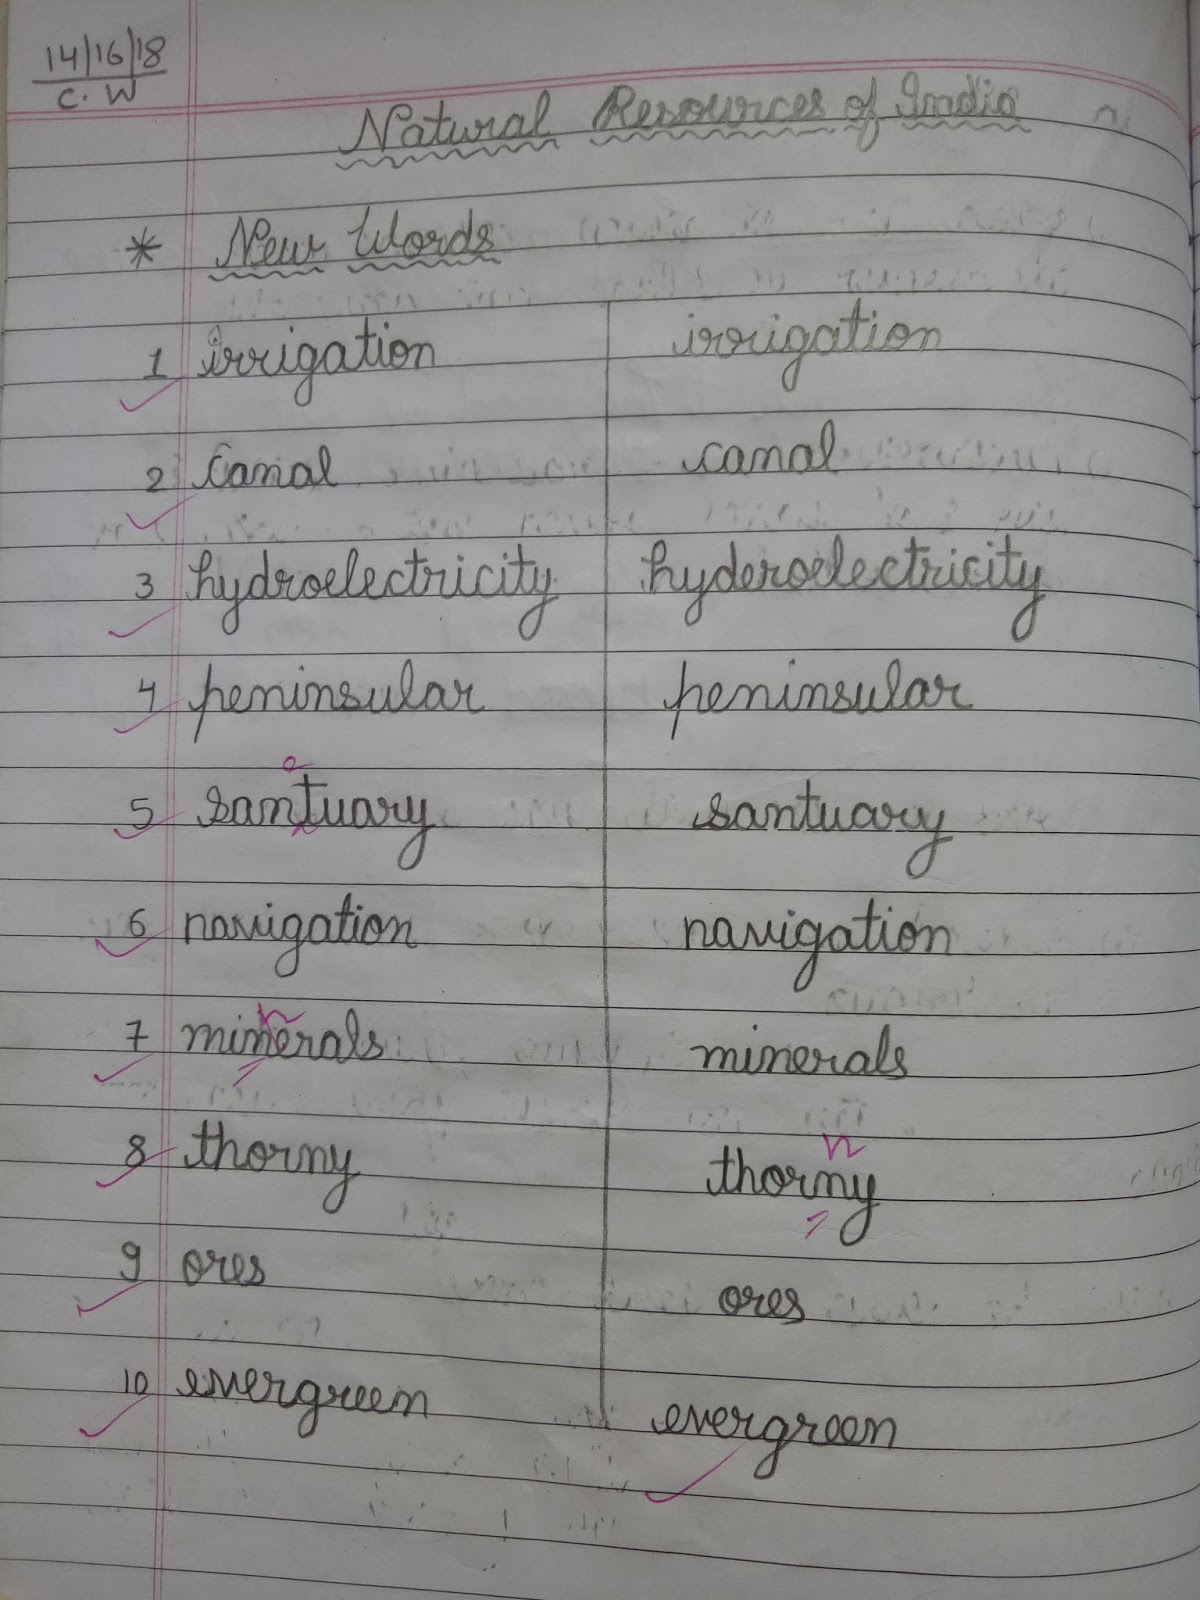 14/16/18
C.W
Natural Resources of India
* New Words
1 irrigation irrigation
2 Canal canal
3 hydroelectricity hyderoelectricity
4 peninsular peninsular
c
5 santuary santuary
6 navigation navigation
n
7 minerals minerals
n
8 thorny thorny
9 ores ores
10 evergreen evergreen